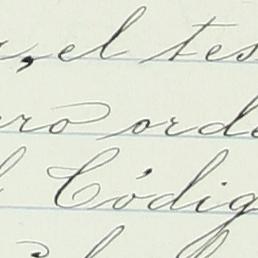 , el tes
ro orde
l Códig